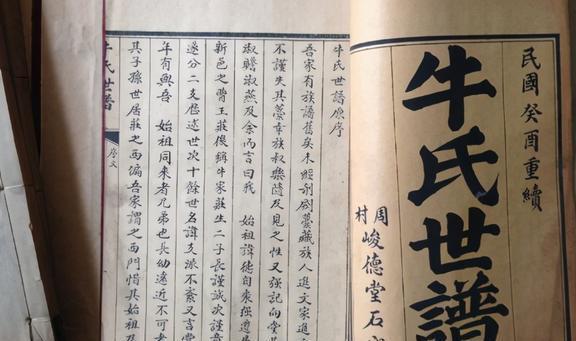 民國癸酉重續
牛氏世譜
周村
峻德堂石
牛氏世譜原序
吾家有族譜舊矣未經剞劂藁藏族人進文家進
不謹失其藁幸族叔樂隨及見之性又强記向堂
叔淑燕及余而言曰我 始祖諱德自棗强遷
新邑之曹王莊後稱牛家莊生二子長謹誠次謹
遂分二支歷述世次十餘世名諱支派不紊又言
年有與吾 始祖同來者兄弟也長幼遠近不可
其子孫世居莊之西偏吾家謂之西門惜其始祖及
牛氏世譜
序文